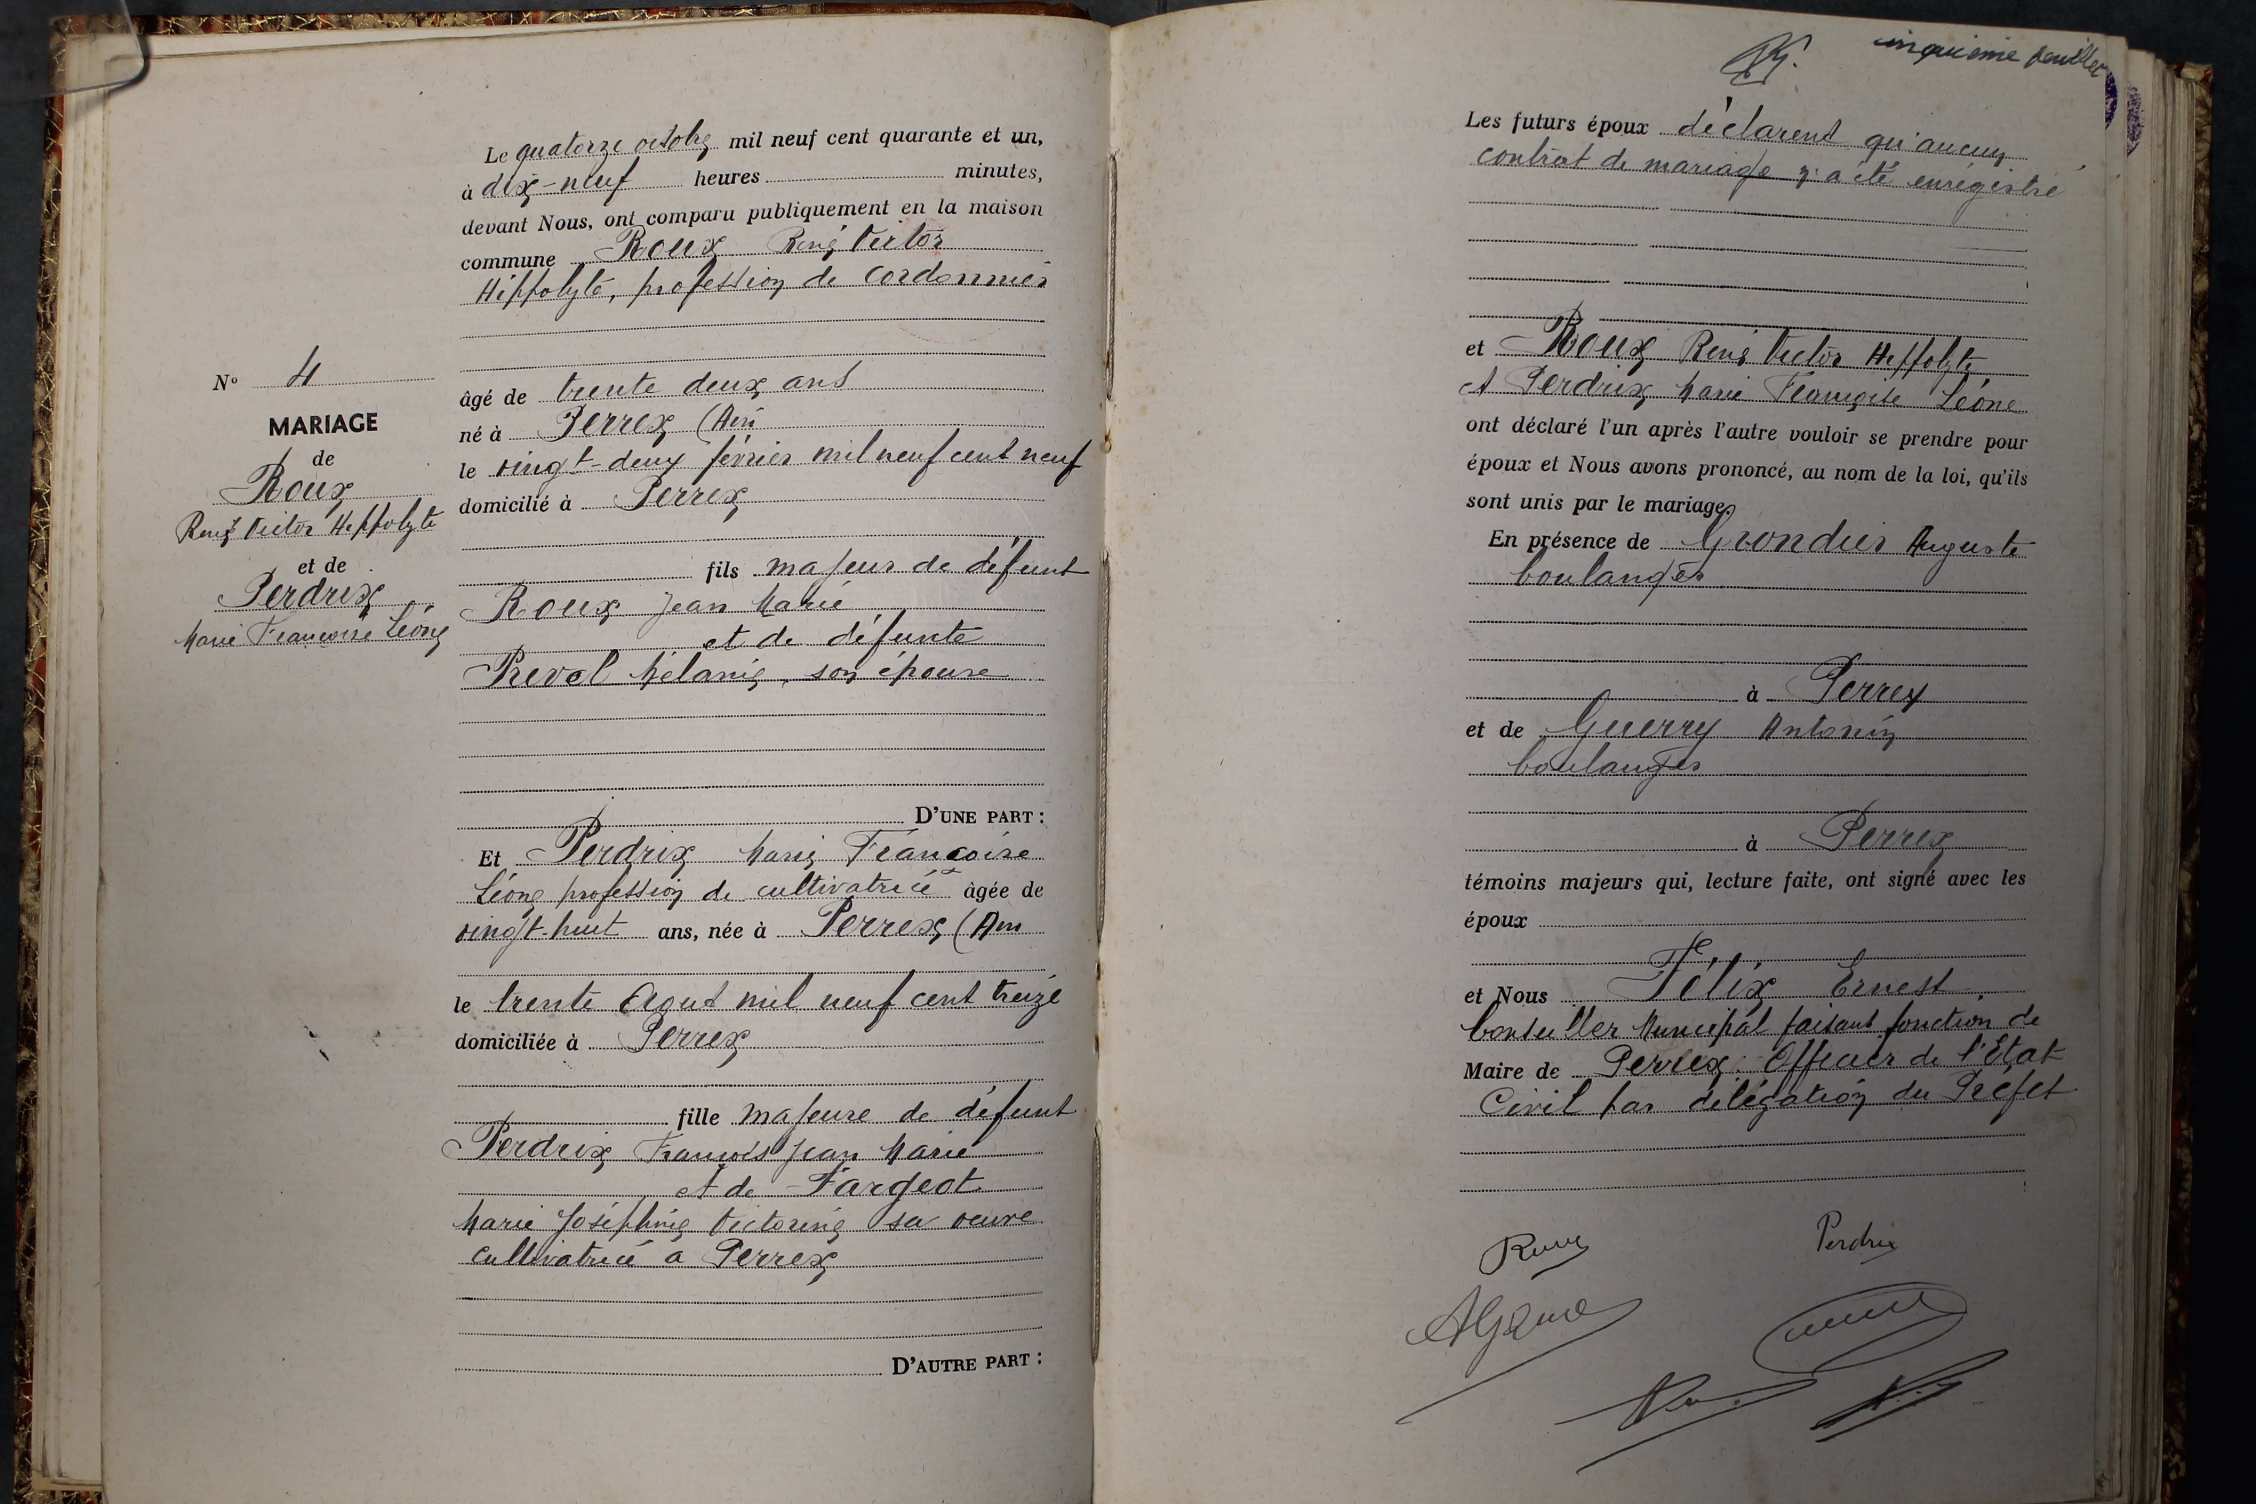 Le quatorze octobre mil neuf cent quarante et un,
à dix-neuf heures minutes,
devant Nous, ont comparu publiquement en la maison
commune Roux René Victor
Hippolyte, profession de cordonnier
âgé de trente deux ans
né à Perrex (Ain
le vingt-deux février mil neuf cent neuf
domicilié à Perrex
fils majeur de défunt
Roux Jean Marie
et de défunte
Revel Mélanie, son épouse
D'UNE PART :
N° 4
MARIAGE
de
Roux
René Victor Hippolyte
et de
Perdrix
Marie Françoise Léone
Et Perdrix Marie Françoise
Léone profession de cultivatrice âgée de
vingt-huit ans, née à Perrex (Ain
le trente Aout mil neuf cent treize
domiciliée à Perrex
fille majeure de défunt
Perdrix François Jean Marie
et de Fargeot
Marie Joséphine Victorine sa veuve
cultivatrice à Perrex
D'AUTRE PART :
cinquième feuillet
Les futurs époux déclarent qu'aucun
contrat de mariage n'a été enrégistré
et Roux René Victor Hippolyte
et Perdrix Marie Françoise Léone
ont déclaré l'un après l'autre vouloir se prendre pour
époux et Nous avons prononcé, au nom de la loi, qu'ils
sont unis par le mariage.
En présence de Auguste
boulanger
à Perrex
et de Guerry Antonin
boulanger
à Perrex
témoins majeurs qui, lecture faite, ont signé avec les
époux
et Nous Félix Ernest
Conseiller Municipal faisant fonction de
Maire de Perrex. Officier de l'Etat
Civil par délégation du Préfet
Roux Perdrix